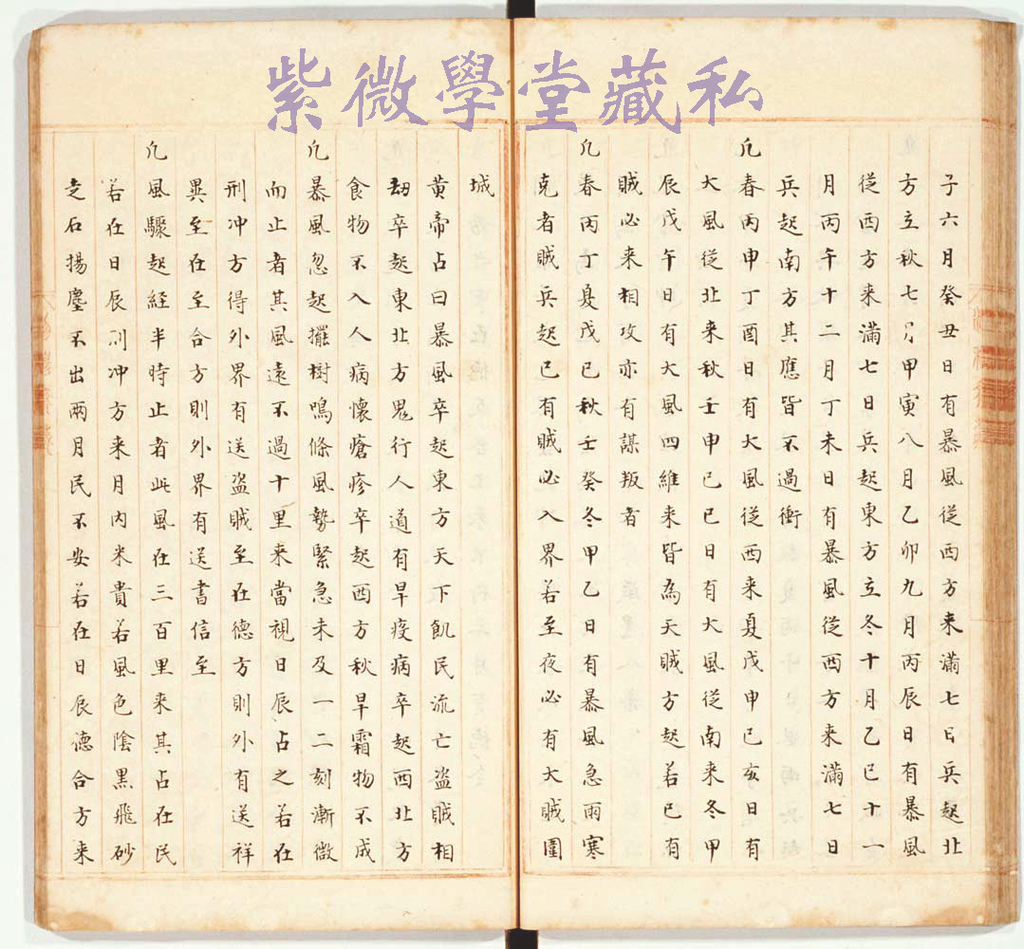 紫微學堂藏私
子六月癸丑日有暴風從西方来滿七日兵起北
方立秋七月甲寅八月乙卯九月丙辰日有暴風
從西方来滿七日兵起東方立冬十月乙巳十一
月丙午十二月丁未日有暴風從西方来滿七日
兵起南方其應皆不過衝
凢春丙申丁酉日有大風從西来夏戊申已亥日有
大風從北来秋壬申已巳日有大風從南来冬甲
辰戊午日有大風四維来皆為天賊方起若已有
賊必来相攻亦有謀叛者
凢春丙丁夏戊已秋壬癸冬甲乙日有暴風急雨寒
克者賊兵起已有賊必入界若至夜必有大賊圍
城
黄帝占曰暴風卒起東方天下飢民流亡盗賊相
刼卒起東北方鬼行人道有旱疫病卒起西北方
食物不入人病懷瘡疹卒起西方秋旱霜物不成
凢暴風忽起擺樹鳴條風勢緊急未及一二刻漸微
而止者其風遠不過十里来當視日辰占之若在
刑冲方得外界有送盗賊至在德方則外有送祥
異至在至合方則外界有送書信至
凢風驟起経半時止者此風在三百里来其占在民
若在日辰刑冲方来月内米貴若風色陰黒飛砂
走石揚塵不出兩月民不安若在日辰德合方来